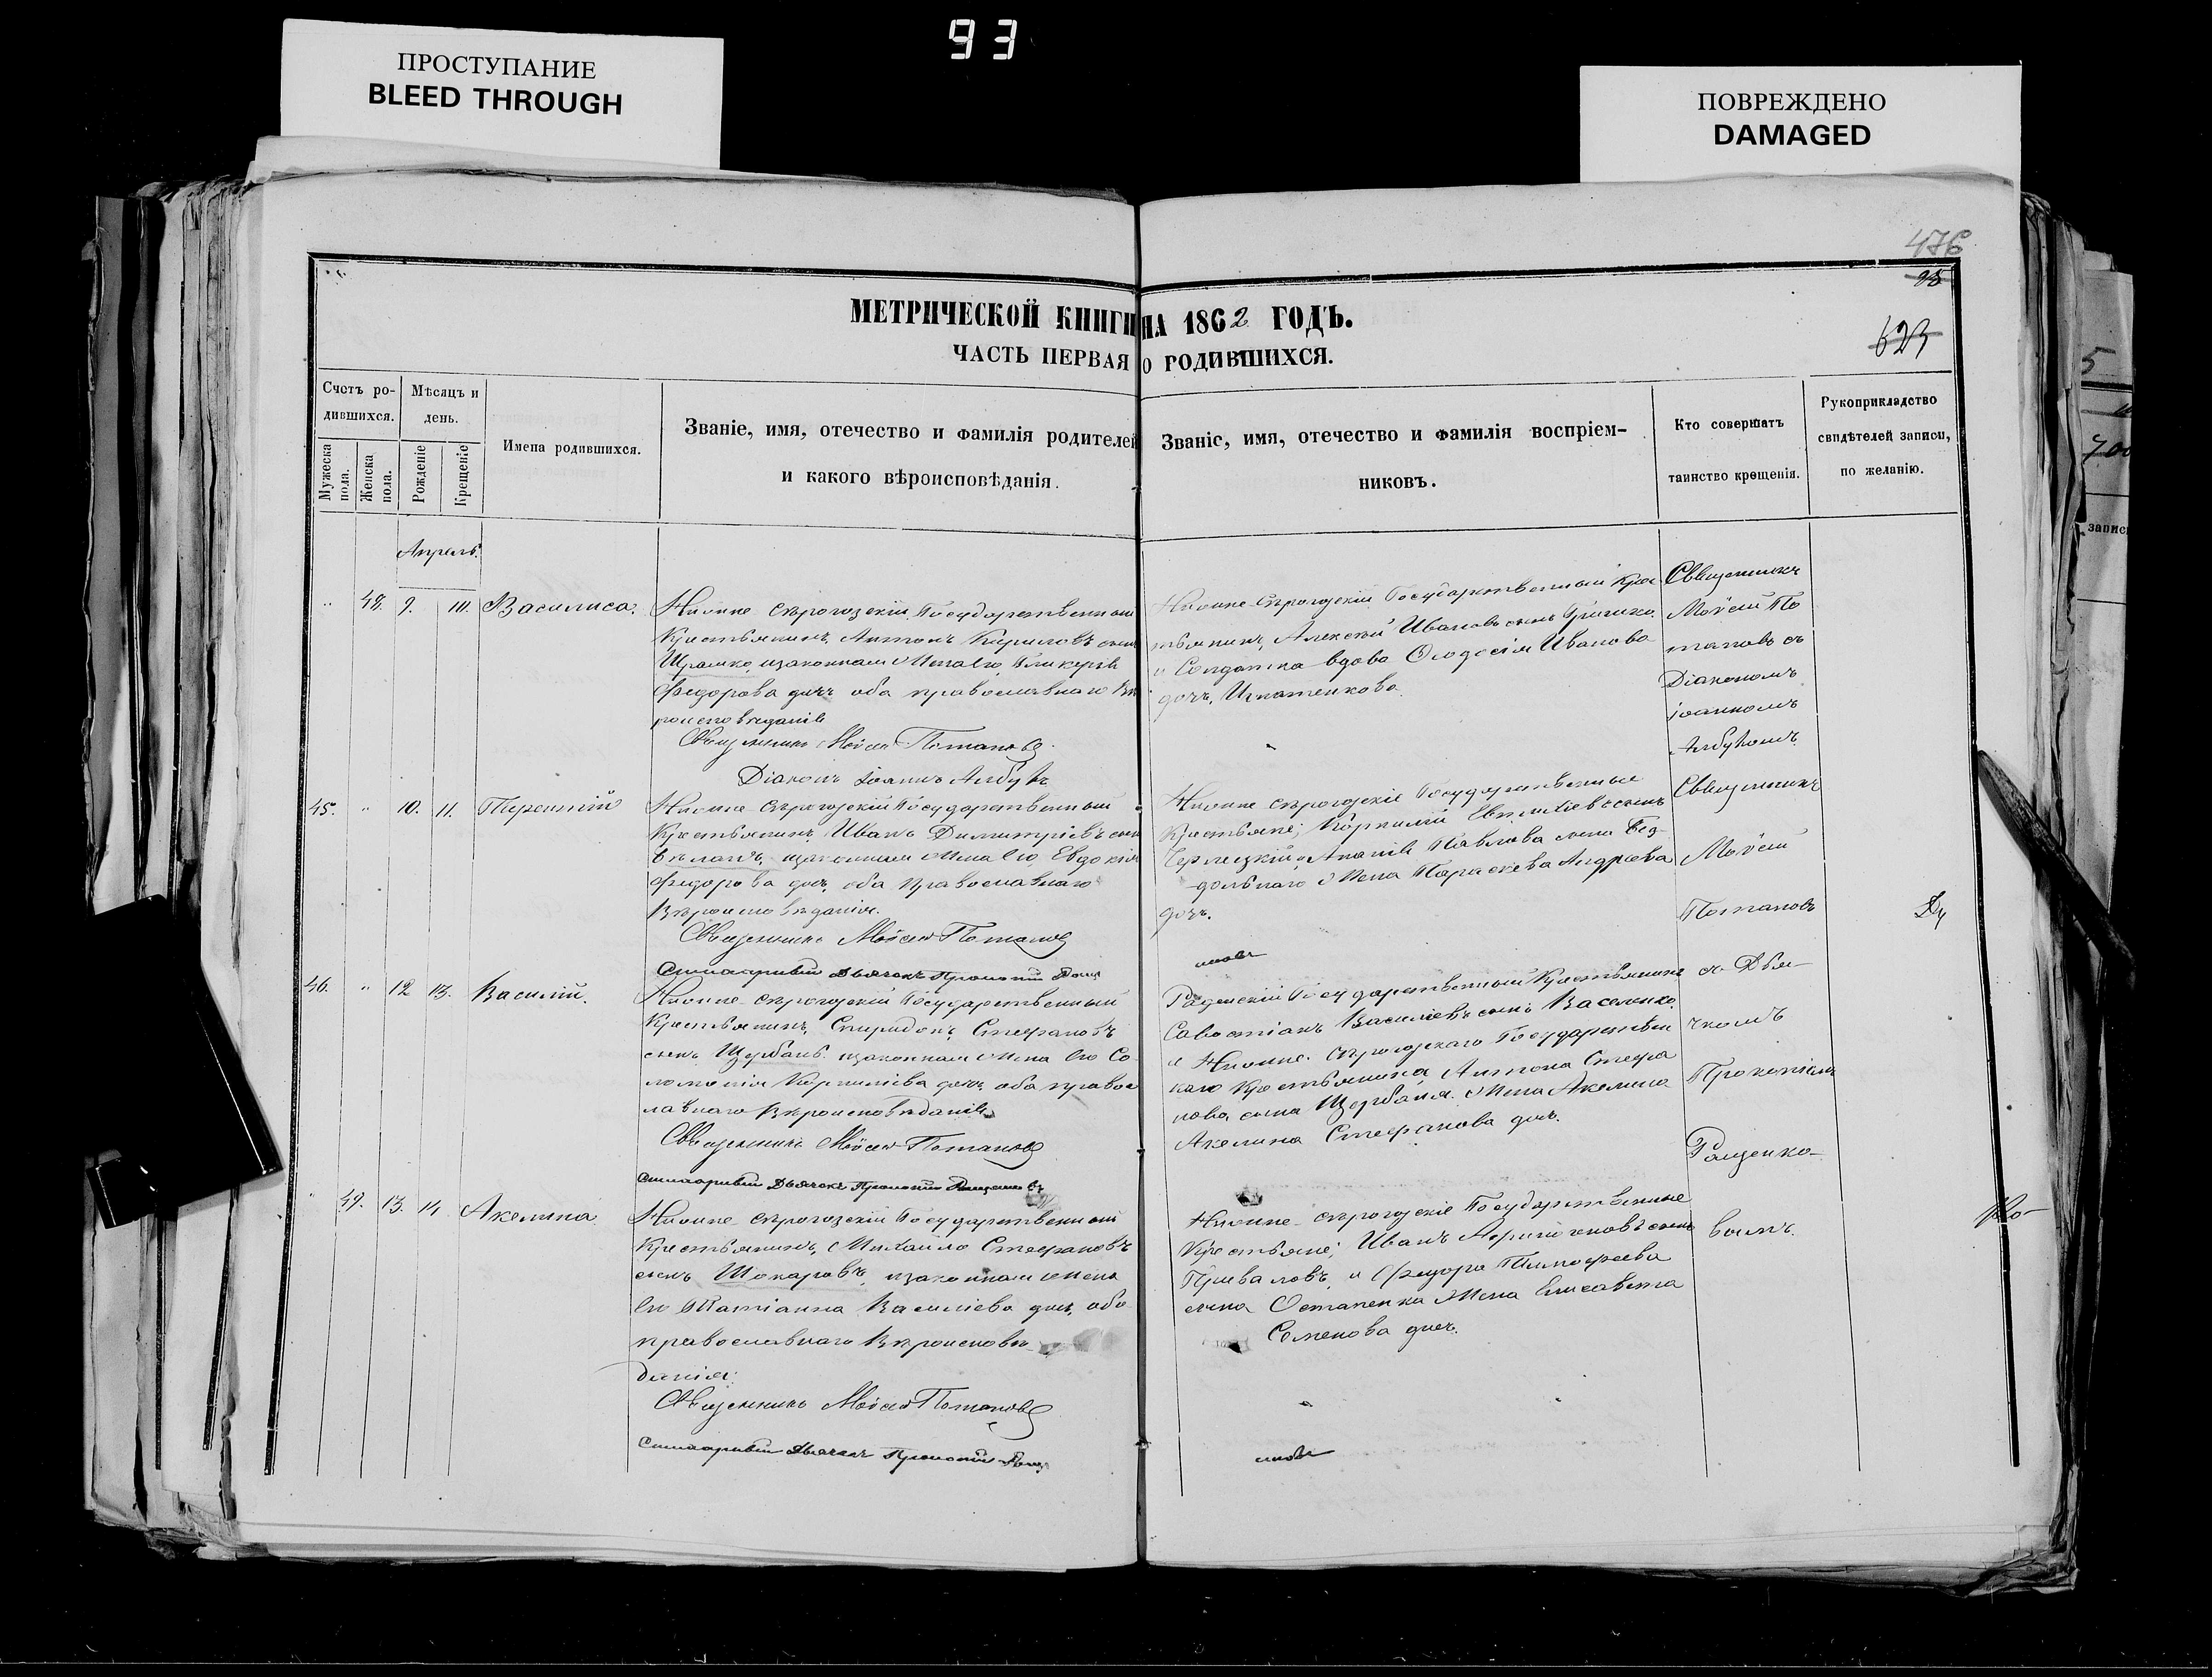 93
ПРОСТУПАНИЕ
BLEED THROUGH
ПОВРЕЖДЕНО
DAMAGED
476
95
623
МЕТРИЧЕСКОЙ КНИГИ НА 1862 ГОДЪ.
ЧАСТЬ ПЕРВАЯ О РОДИВШИХСЯ.
Счетъ ро-
дившихся.
Мужеска
пола.
Женска
пола.
Мѣсяцъ и
день.
Рожденіе
Крещеніе
Имена родившихся.
Званіе, имя, отечество и фамилія родителей
и какого вѣроисповѣданія.
Званіе, имя, отечество и фамилія воспріем-
никовъ.
Кто совершатъ
таинство крещенія.
Рукоприкладство
свидѣтелей записи,
по желанію.
Апрель.
48. 9. Василиса.
Нижне Сѣрогозскій Государственный
Крестьянинъ, Антонъ Кириловъ сынъ
изаконная жена его, Гликерія
Федорова дочь оба православнаго Вѣ
роисповѣданія
Священникъ Мойсей Потаповъ
Діаконъ Іоаннъ
Нижне-Сѣрогозскій Государственный Крес
тьянинъ, Алексѣй Ивановъ сынъ
и Солдатка вдова Ѳеодосія Иванова
дочь, Игнатенкова.
Священникъ
Мойсей По
таповъ съ
Діакономъ
Іоанномъ
45. " 10. 11.
Нижне Сѣрогозскій Государственный
Крестьянинъ, Иванъ Димитріевъ сынъ
изаконная жена его Евдокія
Федорова дочь, оба Православнаго
Вѣроисповѣданія.
Священникъ Мойсей Потаповъ
Дьячокъ Прокопій
Нижне Сѣрогозскіе Государственные
Крестьяне; Корнилій сынъ
Павлова сына Без-
дольнаго жена Параскева Андреева
дочь.
Священникъ
Мойсей
Потаповъ
46. " 12 13. Василій.
Нижне-Сѣрогозскій Государственный
Крестьянинъ, Спиридонъ Стефановъ
сынъ Щербань изаконная жена его Со
ломонія Корниліева дочь оба правос
лавнаго Вѣроисповѣданія
Священникъ Мойсей Потаповъ
Дьячокъ Прокопій
Государственный Крестьянинъ
Савостіанъ Василіевъ сынъ Василенко.
и Нижне Сѣрогозскаго Государствен
наго Крестьянина Антона Стефа
нова сына Щербаня жена Акелина
Акелина Стефанова дочь.
съ Дья-
чкомъ
Прокопіемъ
Рощенко-
вымъ.
49. 13. 14 Акелина
Нижне-Сѣрогозскій Государственный
Крестьянинъ, Михаило Стефановъ
сынъ Шокаровъ, изаконная жена
его Татіанна Василіева дочь, оба
православнаго Вѣроисповѣ
данія.
Священникъ Мойсей Потаповъ
Дьячокъ Прокопій
Нижне-Сѣрогозскіе Государственные
Крестьяне; Иванъ сынъ
Приваловъ, и Федора Тимофеева
сына Остапенка жена Елисавета
Семенова дочь.